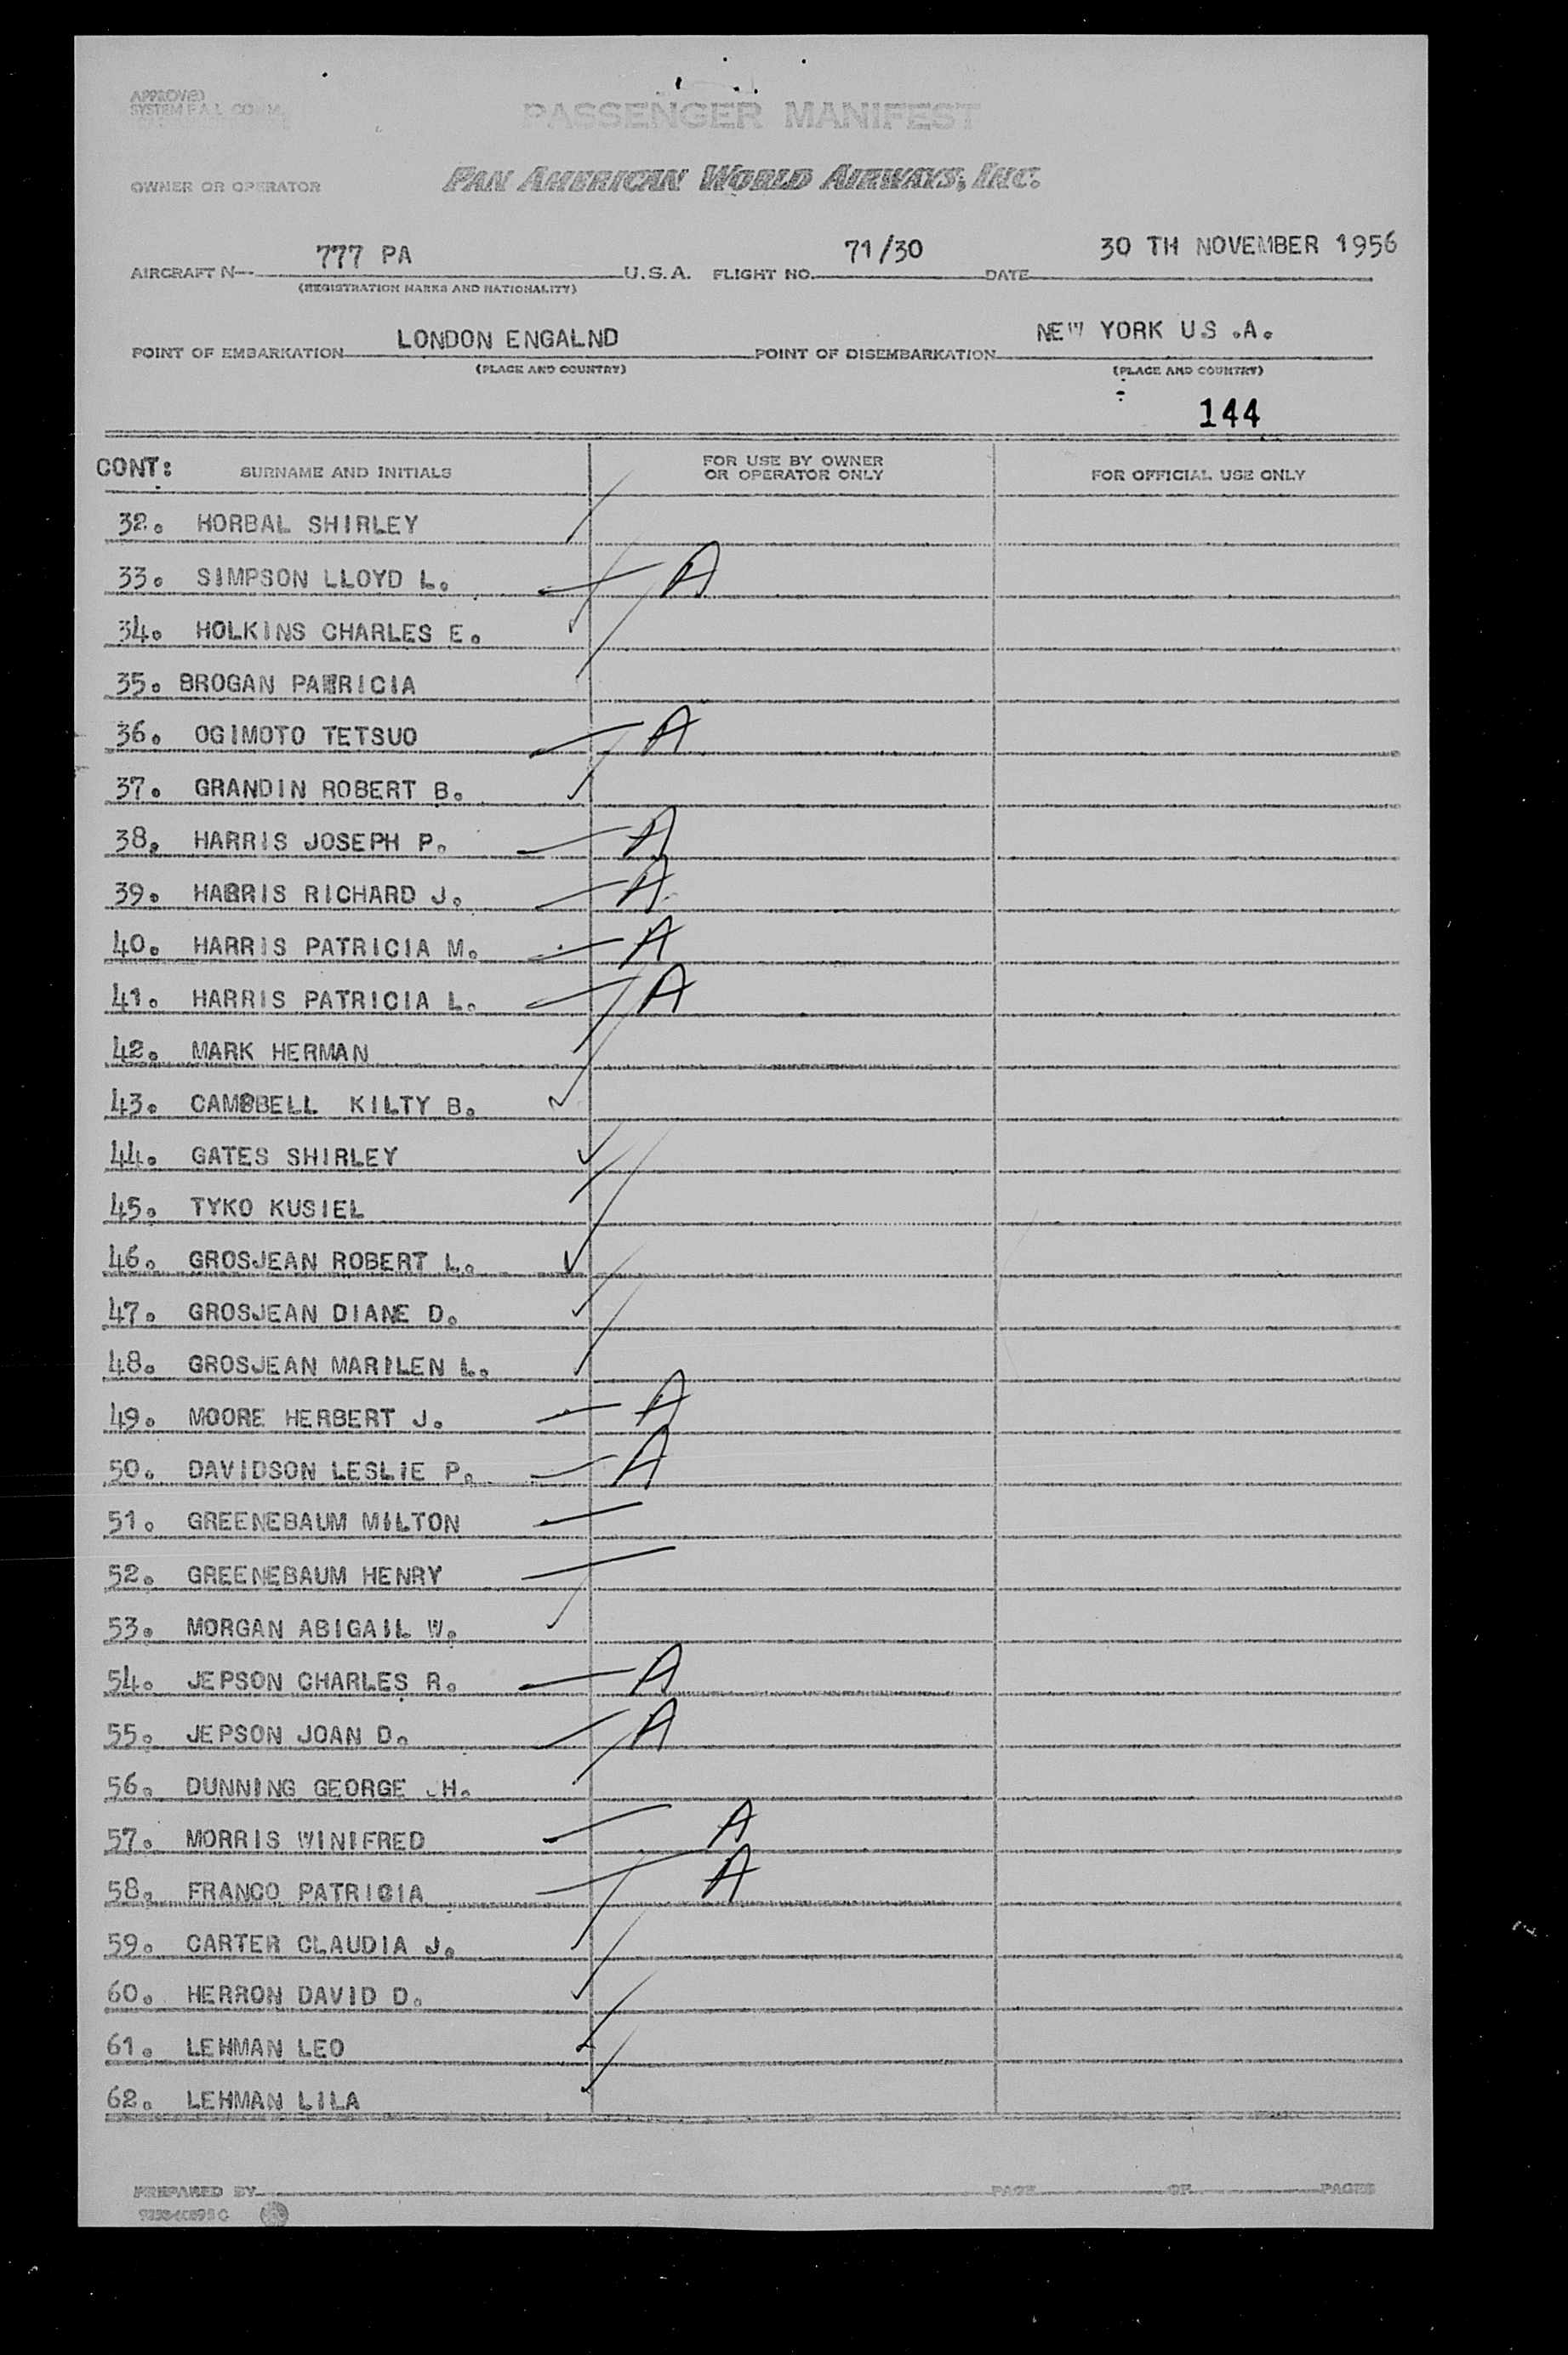 APPROVED
SYSTEM F.A.L. COMM.
PASSENGER MANIFEST
OWNER OR OPERATOR PAN AMERICAN WORLD AIRWAYS, INC.
AIRCRAFT N— 777 PA U.S.A. FLIGHT NO. 71/30 DATE 30 TH NOVEMBER 1956
(REGISTRATION MARKS AND NATIONALITY)
POINT OF EMBARKATION LONDON ENGALND POINT OF DISEMBARKATION NEW YORK US .A.
(PLACE AND COUNTRY) (PLACE AND COUNTRY)
144
CONT: SURNAME AND INITIALS FOR USE BY OWNER OR OPERATOR ONLY FOR OFFICIAL USE ONLY
32. HORBAL SHIRLEY
33. SIMPSON LLOYD L. A
34. HOLKINS CHARLES E.
35. BROGAN PATRICIA
36. OGIMOTO TETSUO A
37. GRANDIN ROBERT B.
38. HARRIS JOSEPH P. A
39. HARRIS RICHARD J. A
40. HARRIS PATRICIA M. A
41. HARRIS PATRICIA L. A
42. MARK HERMAN
43. CAMPBELL KILTY B.
44. GATES SHIRLEY
45. TYKO KUSIEL
46. GROSJEAN ROBERT L.
47. GROSJEAN DIANE D.
48. GROSJEAN MARILEN L.
49. MOORE HERBERT J. A
50. DAVIDSON LESLIE P. A
51. GREENEBAUM MILTON
52. GREENEBAUM HENRY
53. MORGAN ABIGAIL W.
54. JEPSON CHARLES R. A
55. JEPSON JOAN D. A
56. DUNNING GEORGE H.
57. MORRIS WINIFRED A
58. FRANCO PATRICIA A
59. CARTER CLAUDIA J.
60. HERRON DAVID D.
61. LEHMAN LEO
62. LEHMAN LILA
PREPARED BY PAGE OF PAGES